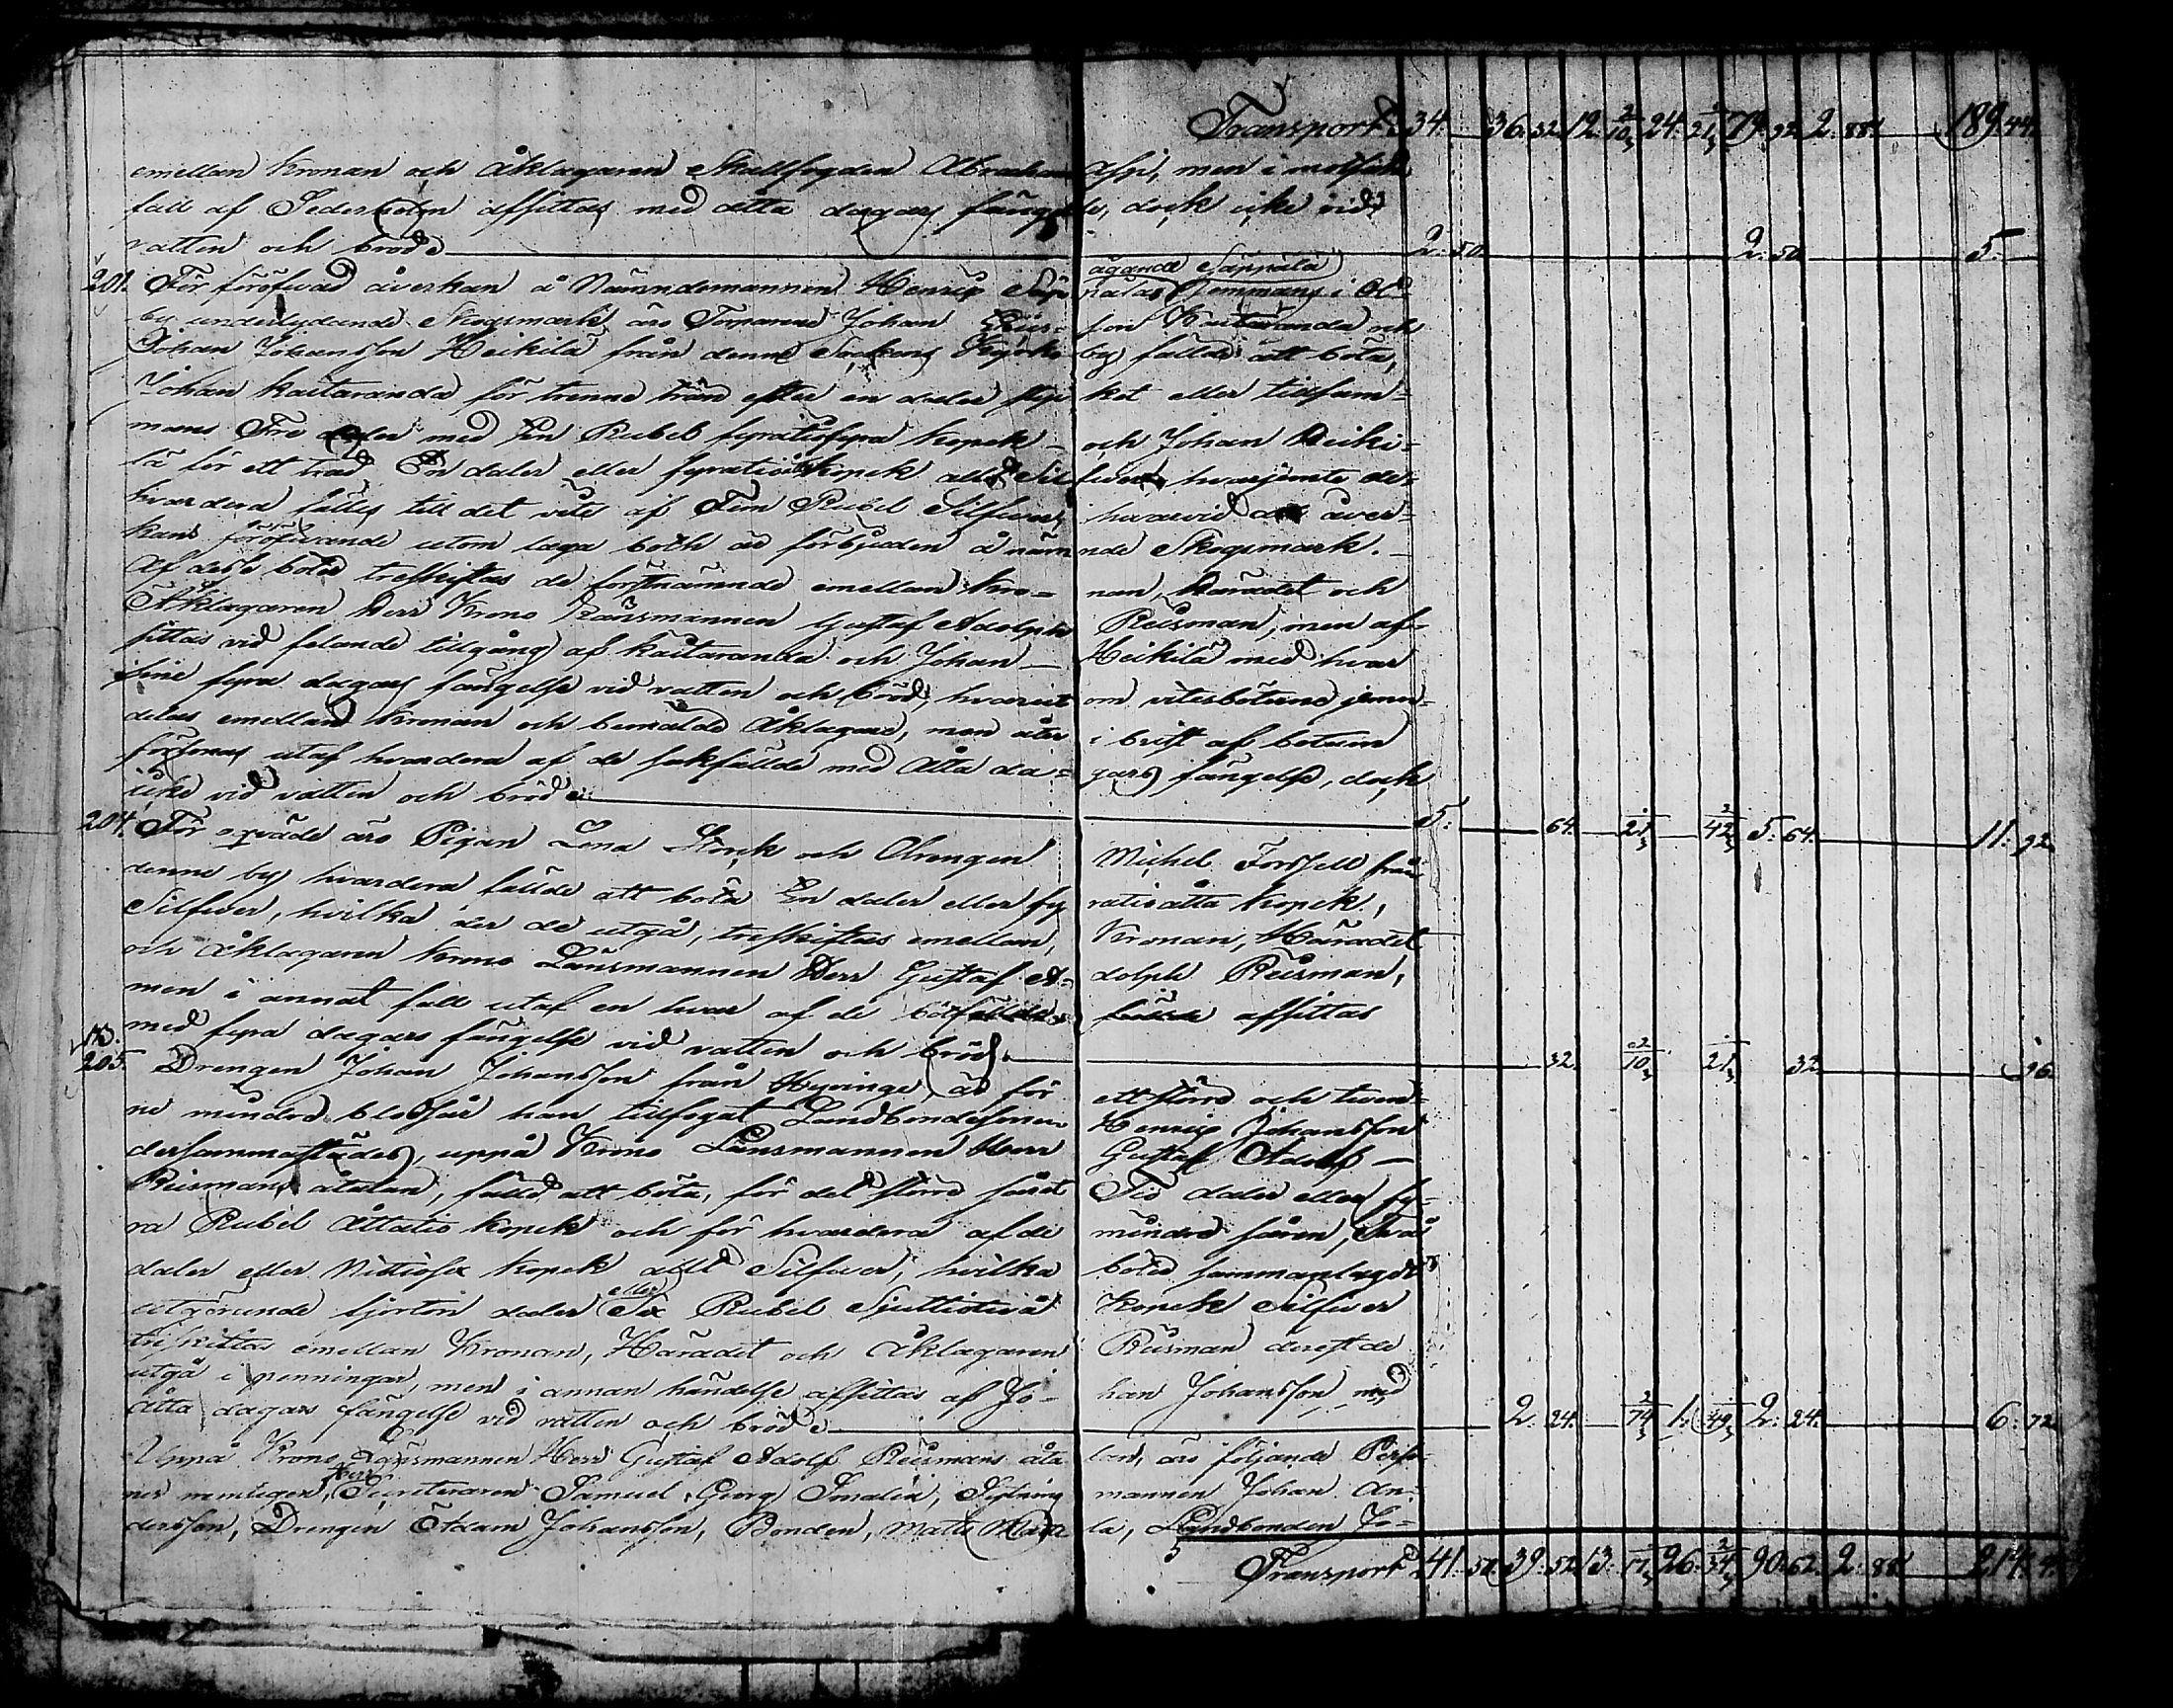 Transport 34. — 36. 32. 12. 10 2/3 24. 21 1/3 79. 92. 2. 88. — 189. 44.
emellan Kronan och Åklagaren Skallfogden Abraham Asp, men i motsatt
fall af Sederholm afsittas med åtta dagars fängelse, dock icke vid
vatten och bröd — 2. 50. 2. 50. 5. —
ägande Säppälä
201. För föröfwad åverkan å Nämndemannen Henric Säppäläs Hemmans i
by underlydande Skogsmark äro Torparene Johan son Kaitaranda och
Johan Johansson Heikilä från denne Sockens by fällde att böta,
Johan Kaitaranda för trenne trän efter en daler stycket eller tillsam-
mans Tre daler med En Rubel fyratiofyra Kopek och Johan Heiki-
lä för ett träd En daler eller fyratioåtta Kopek allt Silfwer, hvarjemte de
hvardera fälles till det vite af Fem Rubel Silfwer, hvarvid all åver-
kans föröfwande utom laga both är förbjuden å nämnde Skogsmark. —
Af desse böter treskiftas de förstnämnde emellan Kro- nan, Häradet och
Åklagaren Herr Krono Länsmannen Gustaf Adolph Reusman, men af-
sittas vid felande tillgång af Kaitaranda och Johan — Heikilä med hvar
sine fyra dagars fängelse vid vatten och bröd, hvarut om vitesböterne jemn-
delas emellan Kronan och bemälde Åklagare, men åter i brist af botum
försonas utaf hvardera af de sakfällde med Åtta da- gars fängelse, dock
icke vid vatten och bröd — 5. 64. 21 1/3 42 2/3 5. 64. 11. 92.
204. För qväde äro Pigan Lena Storck och Drengen Michel Forssell från
denne by hvardera fällde att böta En daler eller fyratioåtta Kopek,
Silfwer, hvilka der de utgå, treskiftas emellan, Kronan, Häradet
och Åklagaren Krono Länsmannen Herr Gustaf A- dolph Reusman,
men i annat fall utaf en hvar af de bötfällde afsittas
med fyra dagars fängelse vid vatten och bröd. — 32. 10 2/3 21 1/3 32. 96.
205. Drengen Johan Johansson från Hyvinge, är för ett större och twen-
ne mindre blodsår han tillfogat Landbondesonen Henric Johansson
dersammastädes, uppå Krono Länsmannen Herr Gustaf Adolf —
Reusmans åtalan, fälld att böta, för det större såret Tio daler eller fy-
ra Rubel Åttatio Kopek och för hvardera af de mindre såren, Två
daler eller Nittiosex Kopek allt Silfwer, hvilka böter sammanlagdt
utgörande fjorton daler eller Sex Rubel Sjuttiotwå Kopek Silfwer
treskiftas emellan Kronan, Häradet och Åklagaren Reusman derest de
utgå i penningar, men i annan händelse afsittas af Jo- han Johansson med
åtta dagars fängelse vid vatten och bröd — 2. 24. 74 2/3 1. 49 1/3 2. 24. 6. 72.
Uppå Krono Länsmannen Herr Gustaf Adolf Reusmans åta- lan, äro följande Perso-
ner nemligen, Herr Samuel Georg Smalén, mannen Johan An-
dersson, Drengen Adam Johansson, Bonden, Matts Landbonden Jo-
Transport 41. 50. 39. 52. 13. 17 1/3 26. 34 2/3 90. 62. 2. 88. 214. 4.